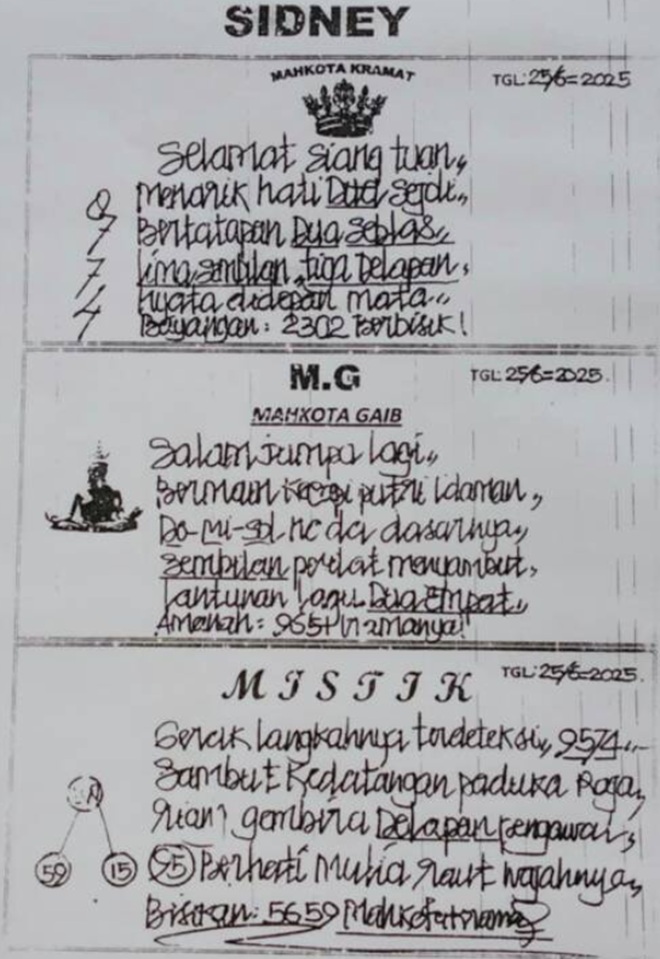 SIDNEY
MAHKOTA KRAMAT
TGL: 25/6=2025
Selamat siang tuan,,
8 menarik hati sejoli,,
7 Bertatapan Dua Seblas,,
7 Lima sembilan, tiga Delapan,
4 nyata didepan mata,,
Bayangan: 2302 Berbisik!
M.G
TGL: 25/6=2025.
MAHKOTA GAIB
Salam jumpa lagi,,
Bermain putri idaman,,
Do-Mi-Sol dasarnya,,
Sembilan menyambut,
Lantunan lagu Dua Empat,,
Amanah:
MISTIK
TGL: 25/6=2025.
langkahnya terdeteksi,, 9574,,
Sambut Kedatangan paduka Raja,
gembira Delapan pengawal,,
59 15 95 Berhati Mulia raut wajahnya,,
Bisikan: 5659